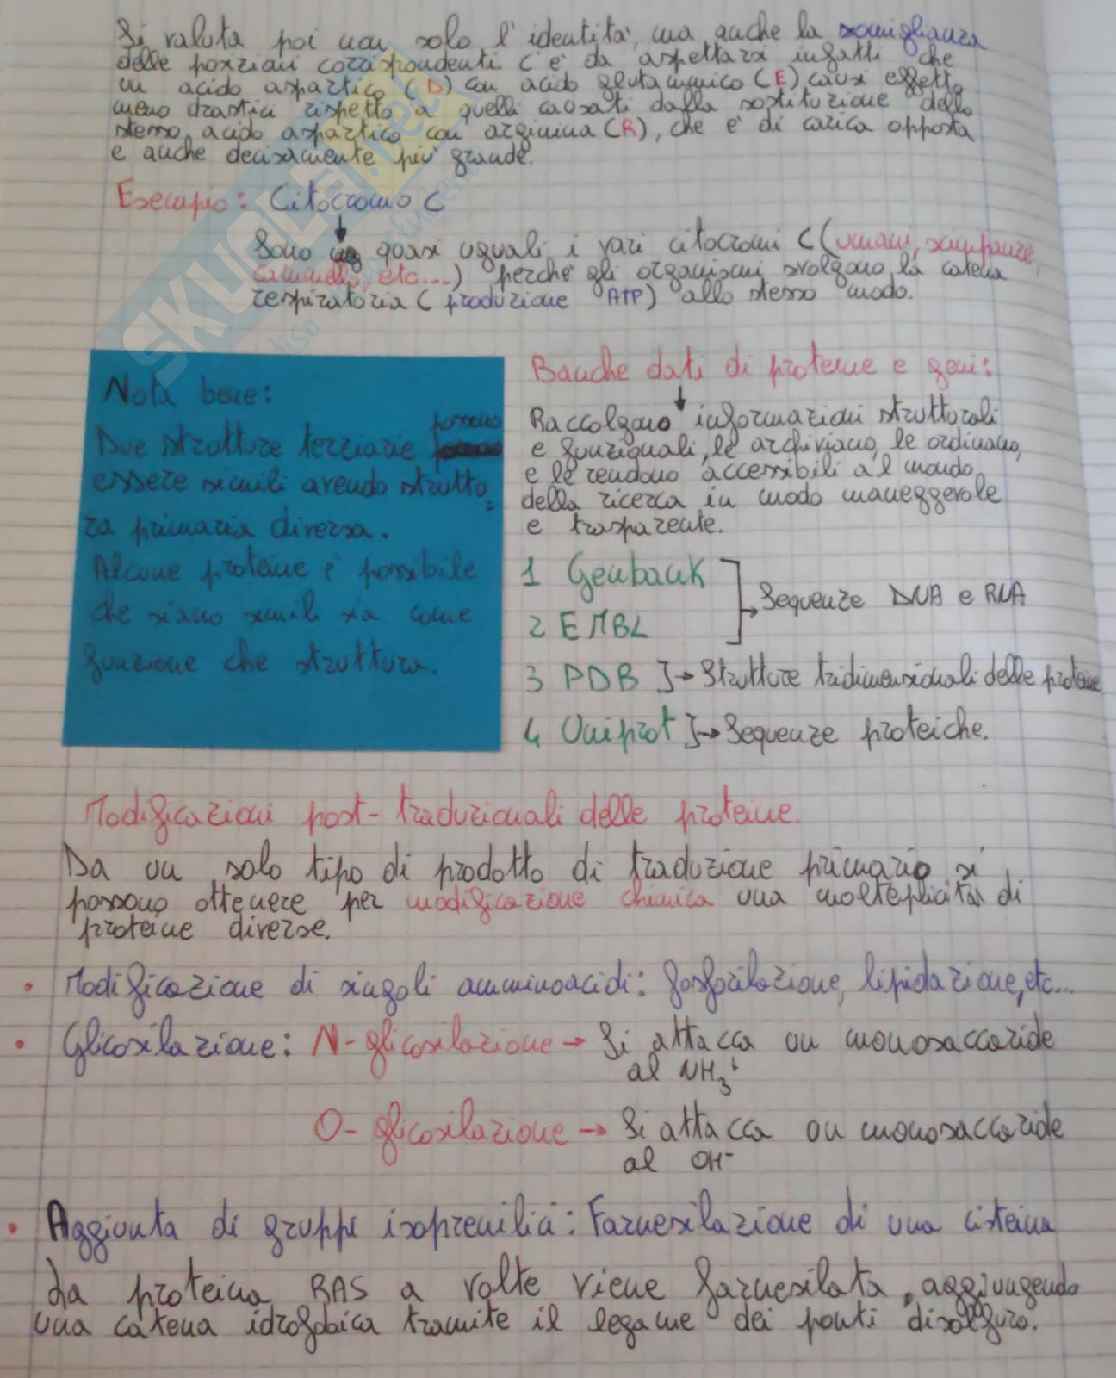 Si valuta poi non solo l'identità, ma anche la somiglianza
delle porzioni corrispondenti c'è da aspettarsi infatti che
un acido aspartico (D) con acido glutammico (E) causi effetto
meno drastici rispetto a quelli causati dalla sostituzione dello
stesso acido aspartico con arginina (R), che è di carica opposta
e anche decisamente più grande.
Esempio: Citocromo C
Sono quasi uguali i vari citocromi C (umani, scimpanzé,
etc...) perchè gli organismi svolgono la catena
respiratoria (produzione ATP) allo stesso modo.
Nota bene:
Due strutture terziarie possono
essere simili avendo strutto
ra primaria diversa.
Alcune proteine è possibile
che siano simili sia come
funzione che struttura.
Banche dati di proteine e geni:
Raccolgono informazioni strutturali
e funzionali, le archiviano, le ordinano,
e le rendono accessibili al mondo
della ricerca in modo maneggevole
e trasparente.
1 Genbank
2 EMBL
Sequenze DNA e RNA
3 PDB → Strutture tridimensionali delle proteine
4 Uniprot → Sequenze proteiche.
Modificazioni post-traduzionali delle proteine
Da un solo tipo di prodotto di traduzione primario si
possono ottenere per modificazione chimica una molteplicità di
proteine diverse.
• Modificazione di singoli amminoacidi: fosforilazione, lipidazione, etc...
• Glicosilazione: N-glicosilazione → Si attacca un monosaccaride
al NH₃⁺
O-glicosilazione → Si attacca un monosaccaride
al OH⁻
• Aggiunta di gruppi isoprenilici: Farnesilazione di una cisteina
La proteina RAS a volte viene farnesilata, aggiungendo
una catena idrofobica tramite il legame dei ponti disolfuro.